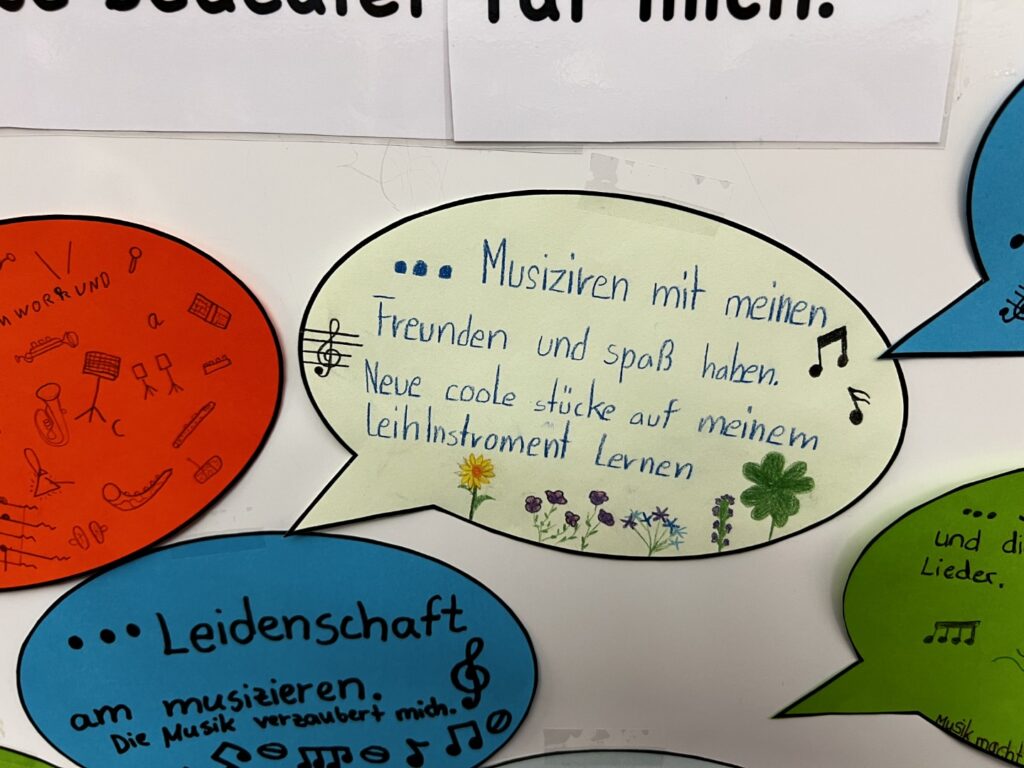 bedeutet für mich:
WORK UND
a
C
... Musiziren mit meinen
Freunden und spaß haben.
Neue coole stücke auf meinem
LeihInstroment Lernen
... Leidenschaft
am musizieren.
Die Musik verzaubert mich.
...
und di
Lieder.
Musik macht